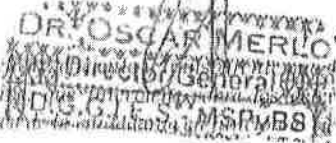 DR. OSCAR MERLO
Director General
D.G.C.T.E.S. MSPyBS